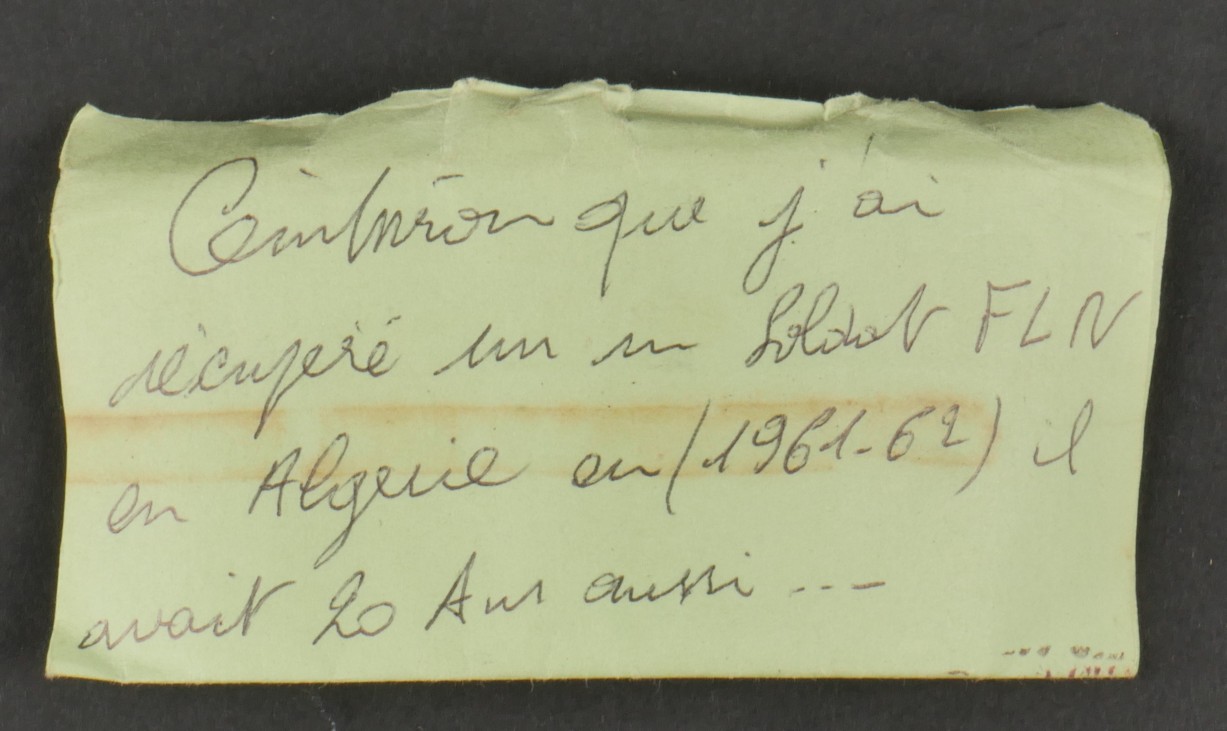 Ceinturon que j'ai
récupéré sur un Soldat FLN
en Algerie en (1961-62) il
avait 20 Ans aussi ---